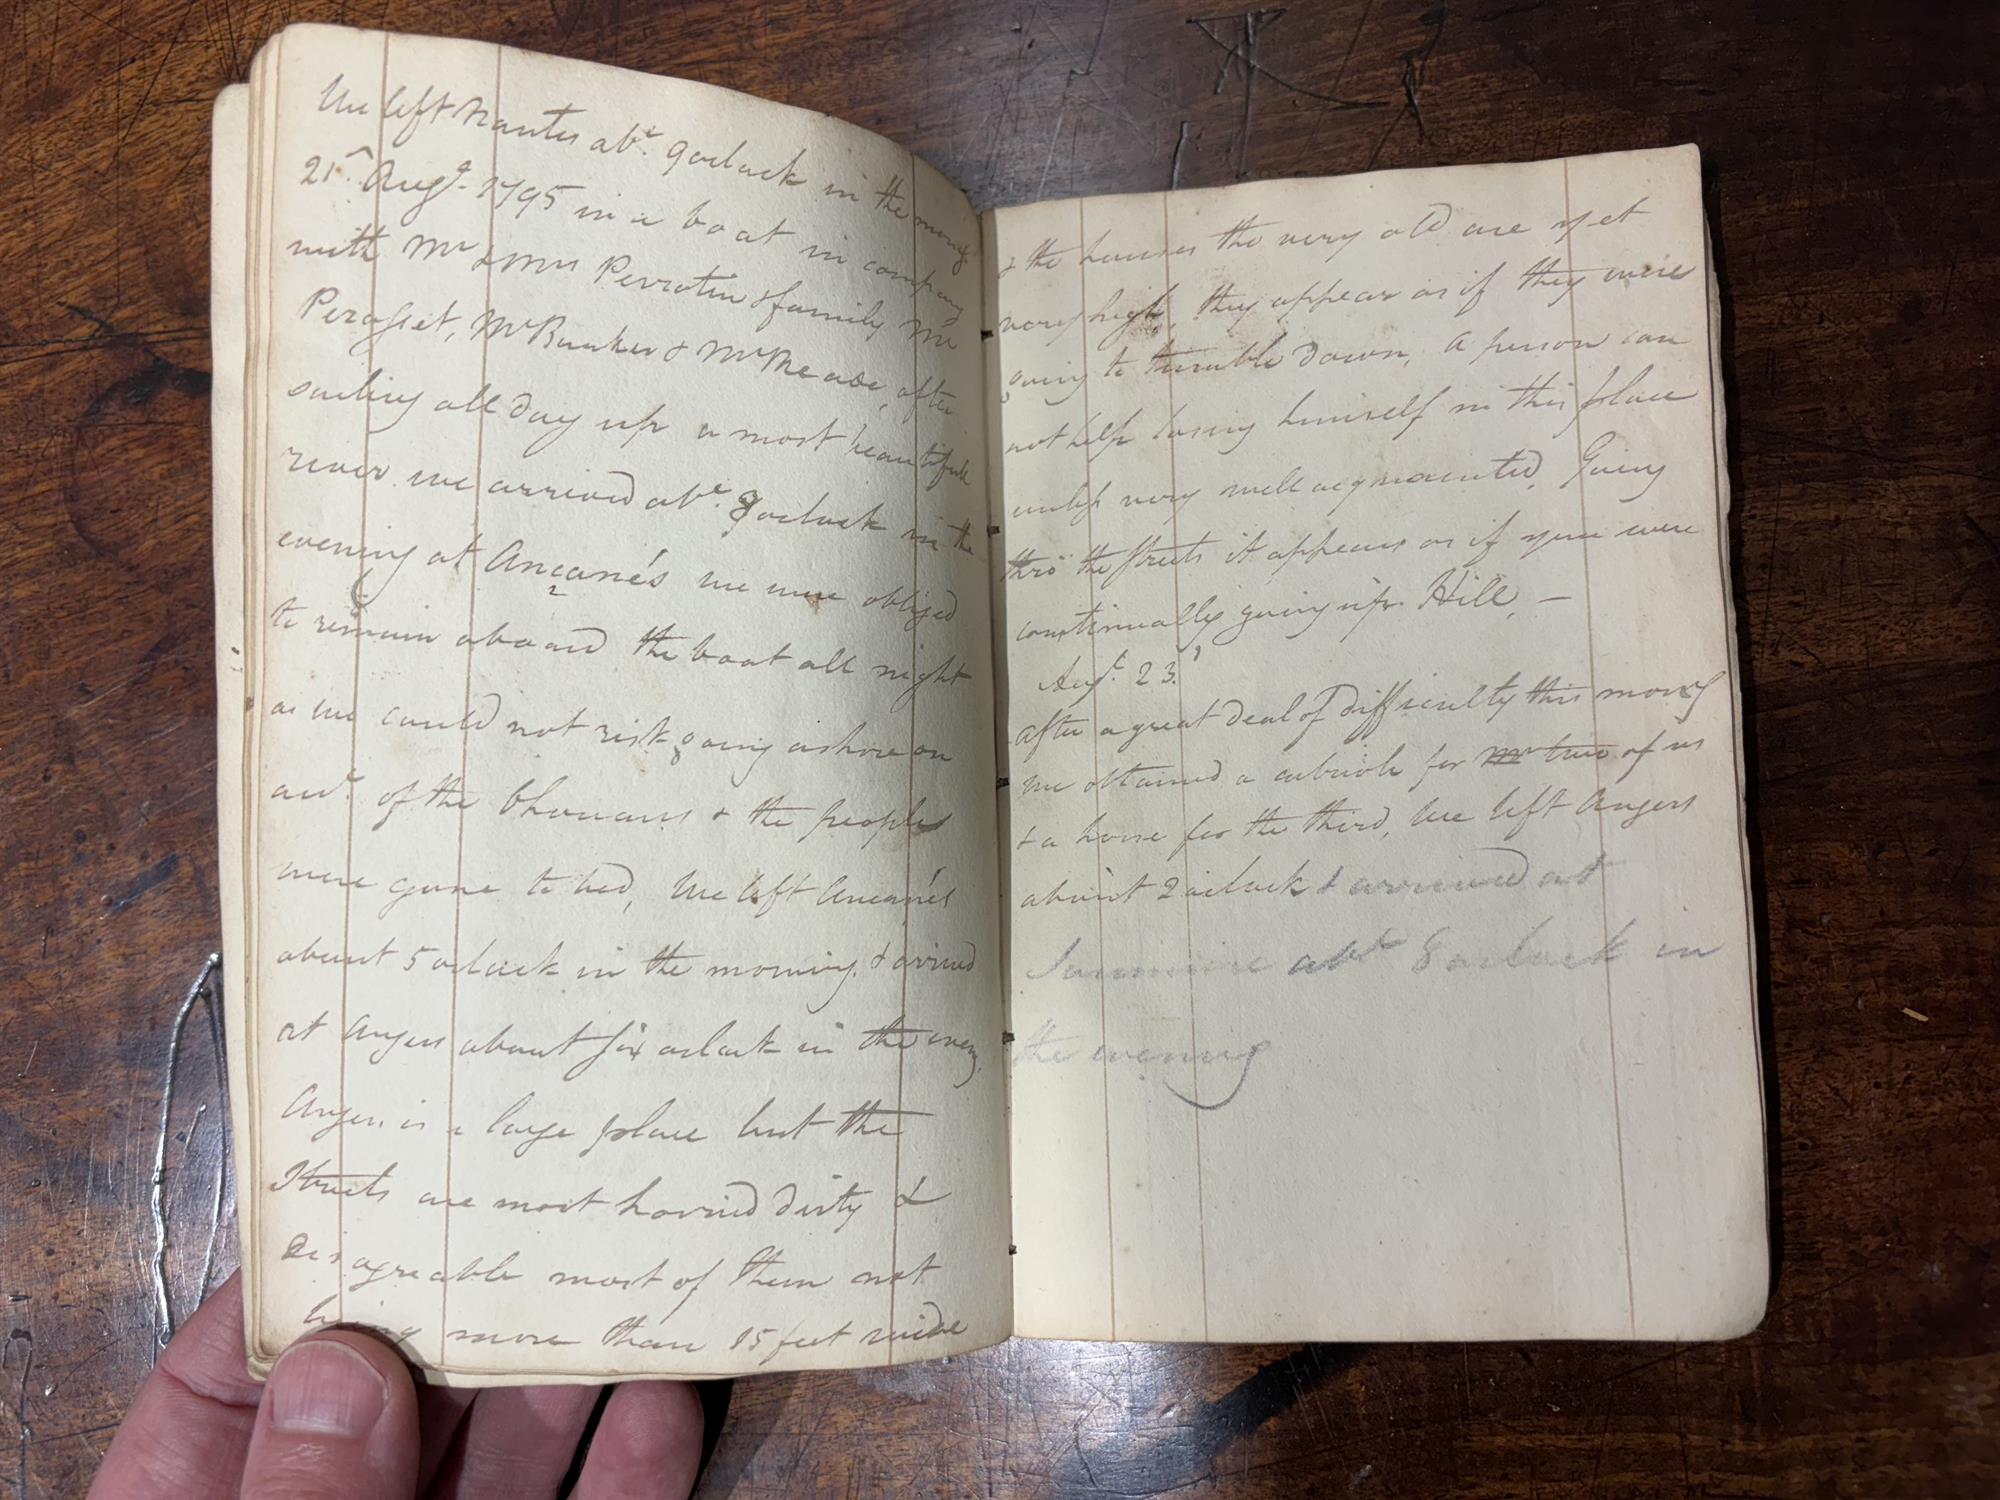 We left Nantes abt. 9 oclock in the morng.
21st Augt. 1795 in a boat in company
with Mr & Mrs Perrotin & family Mr
Perosset, Mr Bunker & Mr Mease, after
sailing all day up a most beautifull
river we arrived abt. 8 oclock in the
evening at Ancané's we were obliged
to remain aboard the boat all night
as we could not risk going ashore on
act. of the Chouans & the peoples
were gone to bed, We left Ancané's
about 5 oclock in the morning. & arrived
at Angers about six oclock in the eveng.
Angers is a large place but the
Streets are most horried dirty &
disagreable most of them not
being more than 15 feet wide
& the houses tho very old are yet
very high, they appear as if they were
going to tumble down, A person can
not help losing himself in this place
unless very well acquainted, Going
thro' the streets it appears as if you were
continually going up Hill, —
Augt. 23d
after a great deal of difficulty this morng
we obtained a cabriole for Mr two of us
& a horse for the third, We left Angers
about 2 oclock & arrived at
abt 8 oclock in
the evening